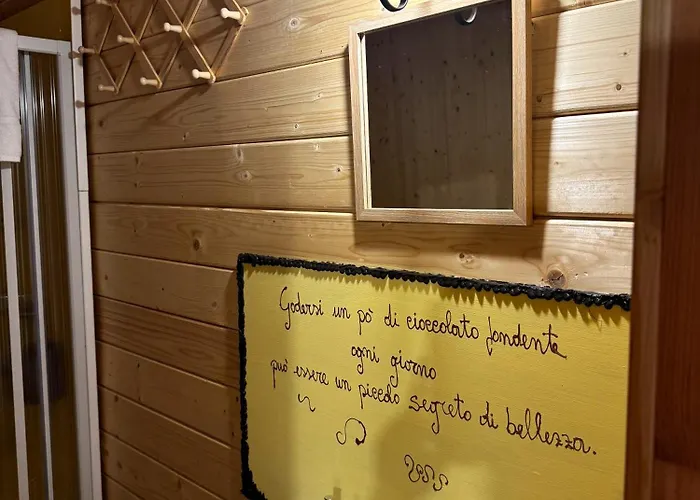 Godersi un pò di cioccolato fondente
ogni giorno
può essere un piccolo segreto di bellezza.